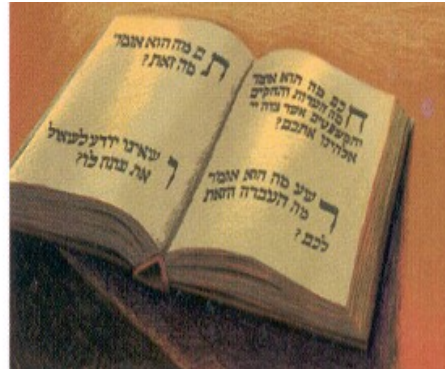 חכם מה הוא אומר
מה העדות והחקים
והמשפטים אשר צוה יי
אלהינו אתכם?
רשע מה הוא אומר
מה העבדה הזאת
לכם?
תם מה הוא אומר
מה זאת?
ושאינו יודע לשאול
את פתח לו?